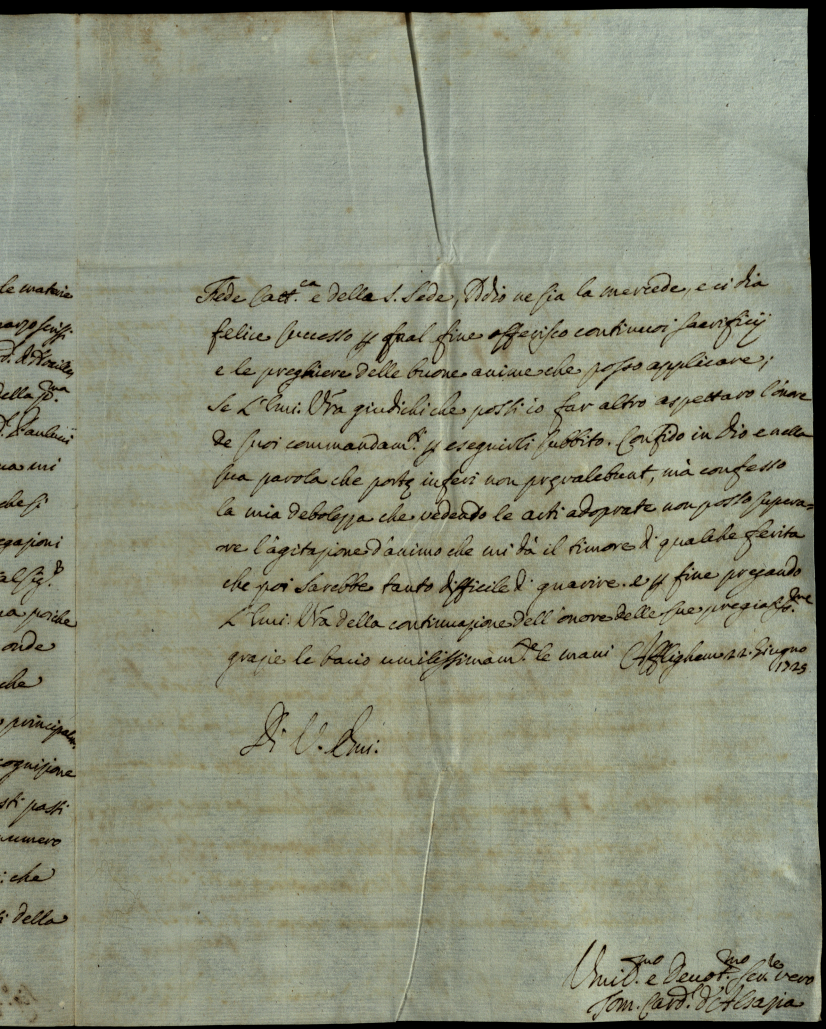 le materie
marzo scrissi
della
Paulucci
ma mi
che si
egazioni
al Sig.r
na poiche
onde
che
principalm.
cognizione
sti passi
numero
: che
i della
Fede Catt.ca e della S. Sede, Iddio ne sia la mercede, e ci dia
felice successo p qual fine offerisco continuoi sacrificij
e le preghiere delle buone anime che posso applicare;
se L'Emi. Vra giudichi che possi io far altro aspettarò l'onore
de suoi commandam.ti p eseguirli subbito. Confido in Dio e nella
sua parola che portę inferi non pręvalebunt, mà confesso
la mia debolezza che vedendo le arti adoprate non posso supera=
re l'agitazione d'animo che mi dà il timore di qualche ferita
che poi sarebbe tanto difficile di guarire. e p fine pregando
L'Emi. Vra della continuazione dell'onore delle sue pregiatis.me
grazie le bacio umilissimam.te le mani Afflighem 22. Giugno
1725
Di V. Emi.
Umil.mo e Devot.mo Ser.le vero
Tom. Card. d'Alsazia